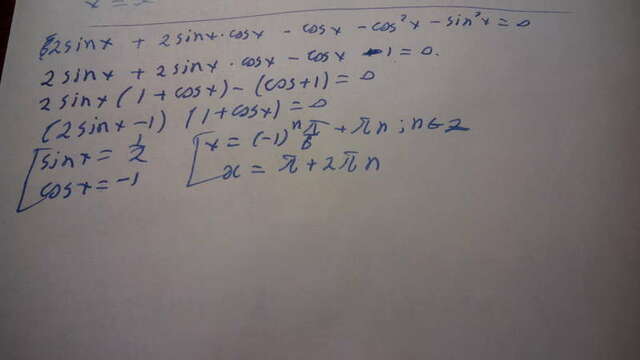 2sinx + 2sinx·cosx - cosx - cos²x - sin²x = 0
2sinx + 2sinx·cosx - cosx - 1 = 0.
2sinx(1+cosx) - (cos+1) = 0
(2sinx-1)(1+cosx) = 0
[sinx = 1/2 [x = (-1)ⁿ π/6 + πn; n∈Z
cosx = -1 x = π + 2πn